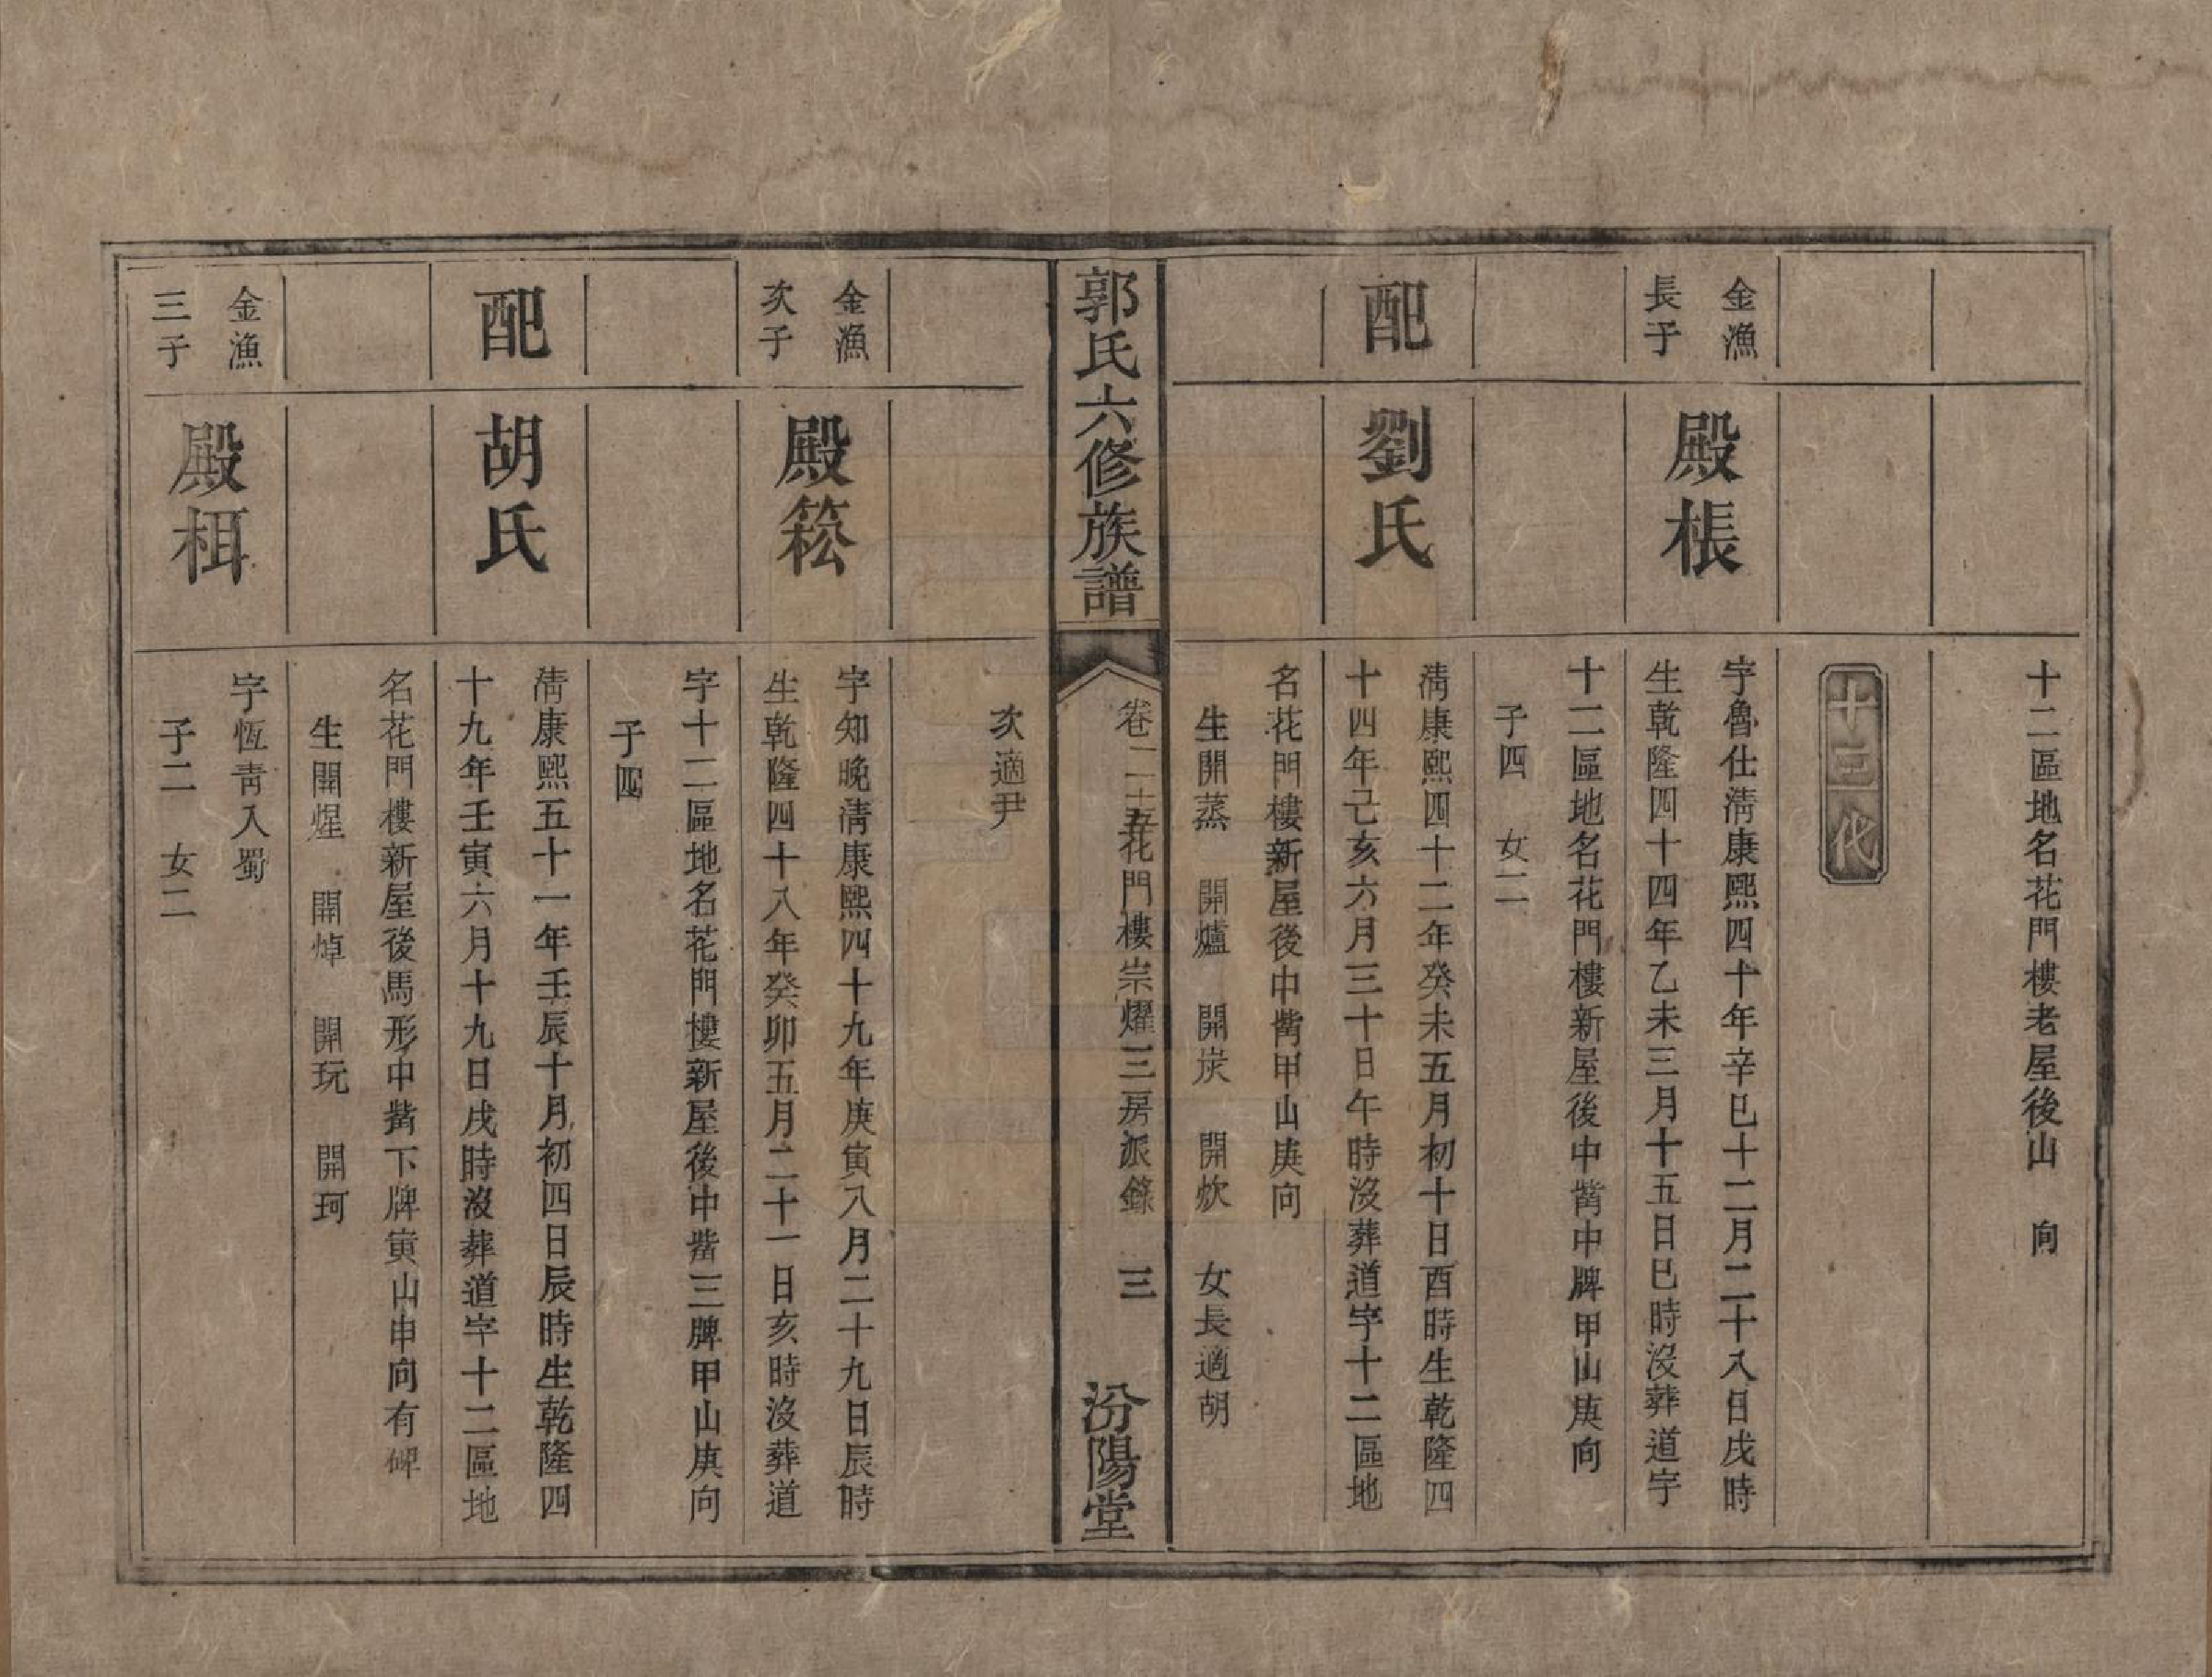 十二區地名花門樓老屋後山　向
十三代
金漁
長子
殿棖
字魯仕淸康熙四十年辛巳十二月二十八日戌時
生乾隆四十四年乙未三月十五日巳時沒葬道字
十二區地名花門樓新屋後中嘴中牌甲山庚向
子四　女二
配
劉氏
淸康熙四十二年癸未五月初十日酉時生乾隆四
十四年己亥六月三十日午時沒葬道字十二區地
名花門樓新屋後中嘴甲山庚向
生開蒸　開爐　開炭　開炊　女長適胡
郭氏六修族譜
卷二十五花門樓崇燿三房派錄　三
汾陽堂
次適尹
金漁
次子
殿籡
字知晚淸康熙四十九年庚寅八月二十九日辰時
生乾隆四十八年癸卯五月二十一日亥時沒葬道
字十二區地名花門樓新屋後中嘴三牌甲山庚向
子四
配
胡氏
淸康熙五十一年壬辰十月初四日辰時生乾隆四
十九年壬寅六月十九日戌時沒葬道字十二區地
名花門樓新屋後馬形中嘴下牌寅山申向有碑
生開煋　開焯　開玩　開珂
金漁
三子
殿栮
字恆靑入蜀
子二　女二